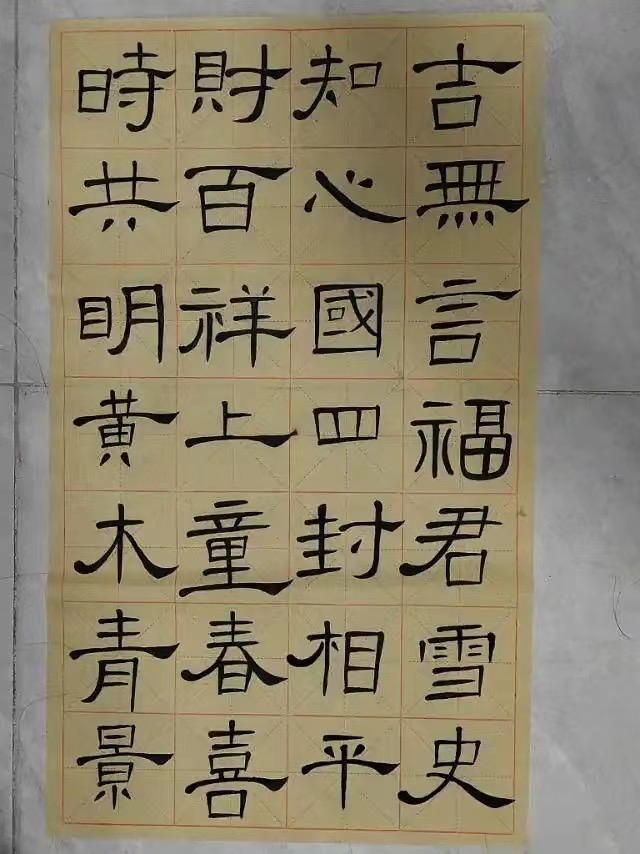 吉無言福君雪史
知心國四封相平
財百祥上童春喜
時共明黄木青景